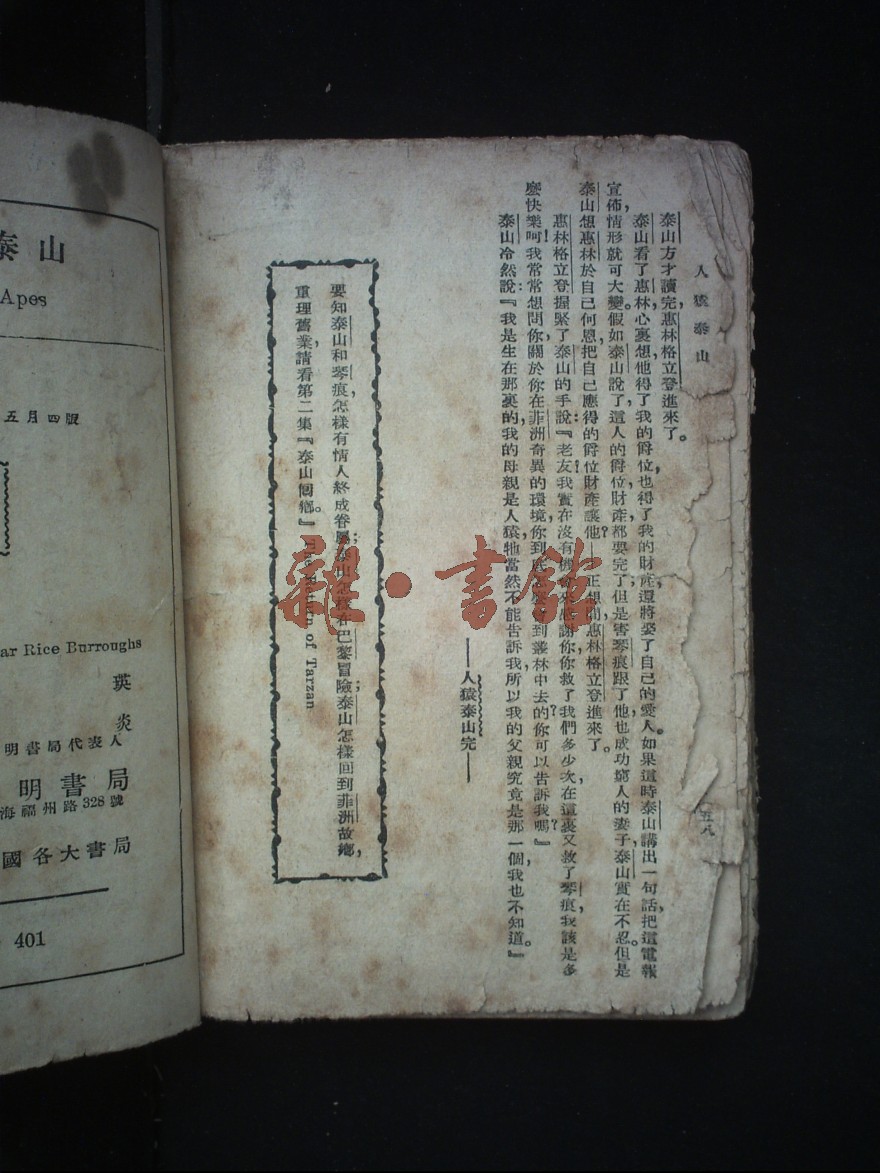 人猿泰山
五八
泰山方才讀完，惠林格立登進來了。
泰山看了惠林，心裏想，他得了我的爵位，也得了我的財產，還將娶了自己的愛人。如果這時泰山講出一句話，把這電報
宣佈，情形就可大變。假如泰山說了，這人的爵位，財產，都要完了；但是害琴痕跟了他，也成功窮人的妻子，泰山實在不忍。但是
泰山想惠林於自己何恩，把自己應得的爵位財產讓他？—正想間，惠林格立登進來了。
惠林格立登握緊了泰山的手說：『老友！我實在沒有機會來感謝你，你救了我們多少次？在這裏又救了琴痕，我該是多
麼快樂呵！我常常想問你，關於你在菲洲奇異的環境，你到底怎麼會到叢林中去的？你可以告訴我嗎？』
泰山冷然說：『我是生在那裏的，我的母親是人猿，牠當然不能告訴我，所以我的父親究竟是那一個，我也不知道。』
——人猿泰山完——
要知泰山和琴痕，怎樣有情人終成眷屬；泰山怎樣在巴黎冒險；泰山怎樣回到菲洲故鄉，
重理舊業，請看第二集『泰山回鄉。』 The Return of Tarzan
泰山
Apes
五月四版
ar Rice Burroughs
瑛
炎
明書局代表人
明書局
海福州路328號
國各大書局
401
雜·書館